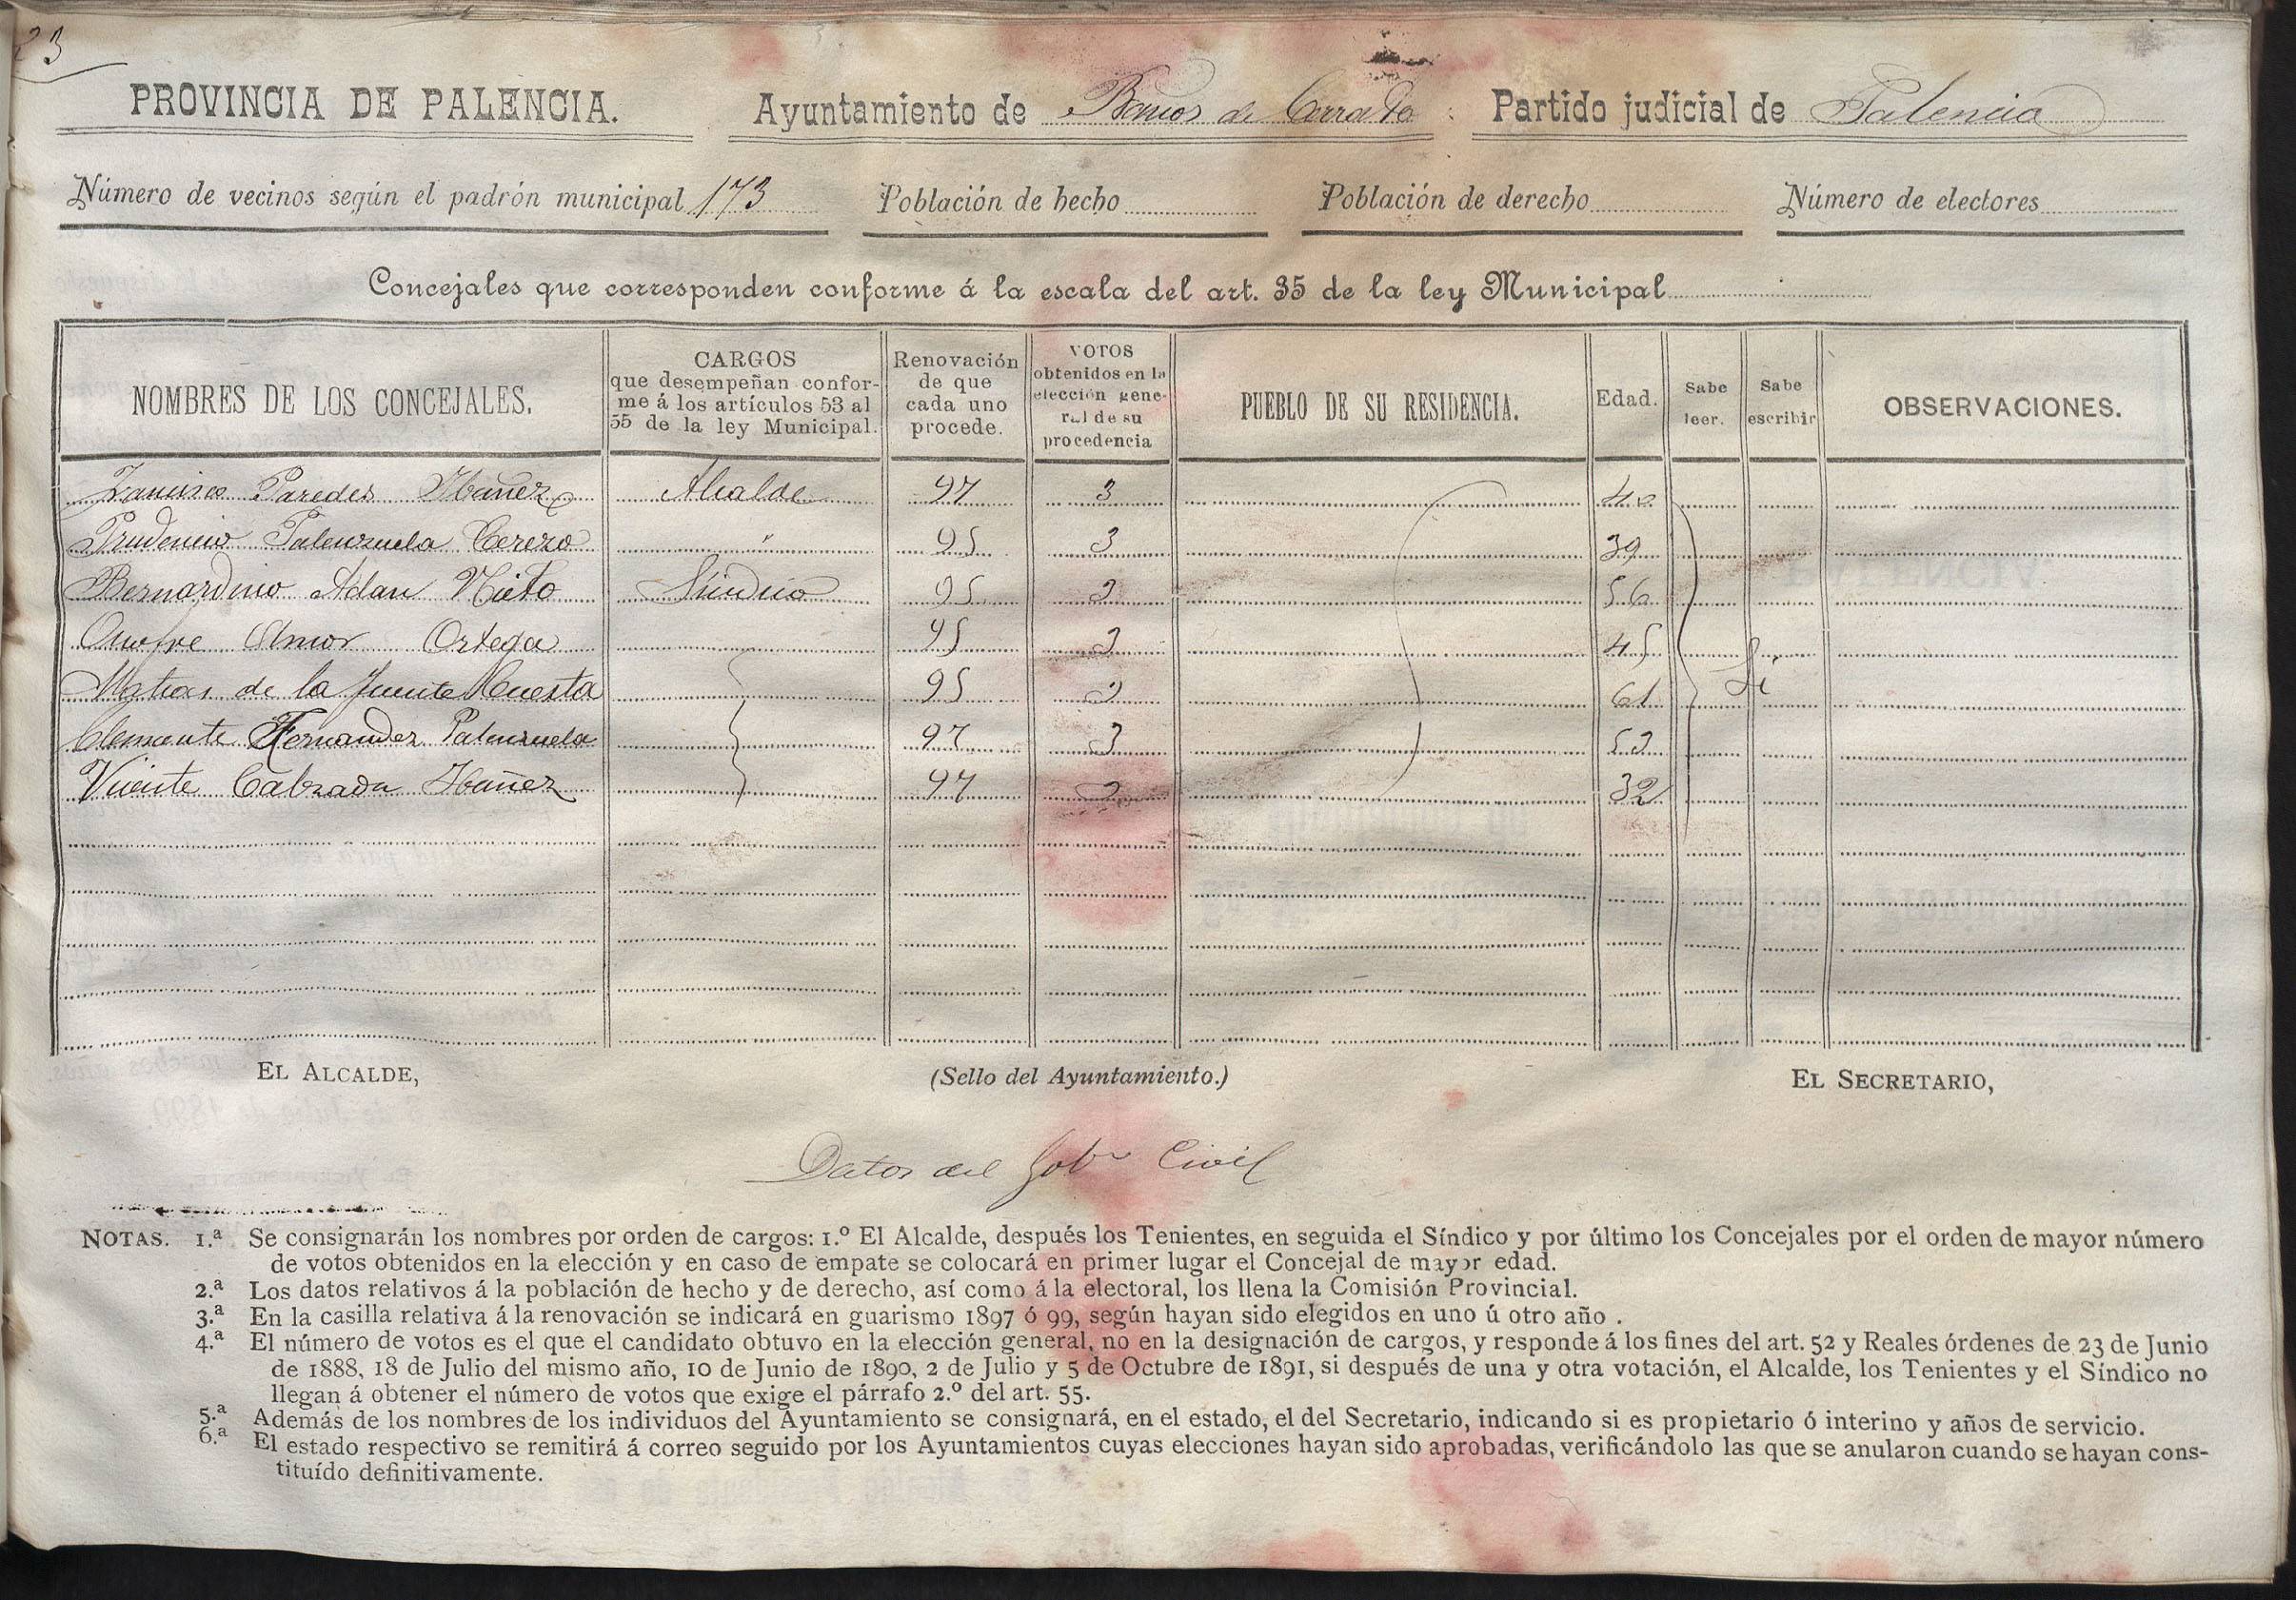 23
PROVINCIA DE PALENCIA. Ayuntamiento de Baños de Cerrato Partido judicial de Palencia
Número de vecinos según el padrón municipal 173 Población de hecho Población de derecho Número de electores
Concejales que corresponden conforme á la escala del art. 35 de la ley Municipal
NOMBRES DE LOS CONCEJALES. CARGOS que desempeñan conforme á los artículos 53 al 55 de la ley Municipal. Renovación de que cada uno procede. VOTOS obtenidos en la elección general de su procedencia PUEBLO DE SU RESIDENCIA. Edad. Sabe leer. Sabe escribir OBSERVACIONES.
Francisco Paredes Ibañez Alcalde 97 3
Prudencio Palenzuela Cerezo " 95 3 39
Bernardino Adan Nieto Síndico 95 3 56
Onofre Amor Ortega 95 3 45
Matias de la Fuente Cuesta 95 3 61 Si
Clemente Fernandez Palenzuela 97 3 53
Vicente Calzada Ibañez 97 3 32
EL ALCALDE, (Sello del Ayuntamiento.) EL SECRETARIO,
Datos del Gobno Civil
NOTAS. 1.ª Se consignarán los nombres por orden de cargos: 1.º El Alcalde, después los Tenientes, en seguida el Síndico y por último los Concejales por el orden de mayor número
de votos obtenidos en la elección y en caso de empate se colocará en primer lugar el Concejal de mayor edad.
2.ª Los datos relativos á la población de hecho y de derecho, así como á la electoral, los llena la Comisión Provincial.
3.ª En la casilla relativa á la renovación se indicará en guarismo 1897 ó 99, según hayan sido elegidos en uno ú otro año .
4.ª El número de votos es el que el candidato obtuvo en la elección general, no en la designación de cargos, y responde á los fines del art. 52 y Reales órdenes de 23 de Junio
de 1888, 18 de Julio del mismo año, 10 de Junio de 1890, 2 de Julio y 5 de Octubre de 1891, si después de una y otra votación, el Alcalde, los Tenientes y el Síndico no
llegan á obtener el número de votos que exige el párrafo 2.º del art. 55.
5.ª Además de los nombres de los individuos del Ayuntamiento se consignará, en el estado, el del Secretario, indicando si es propietario ó interino y años de servicio.
6.ª El estado respectivo se remitirá á correo seguido por los Ayuntamientos cuyas elecciones hayan sido aprobadas, verificándolo las que se anularon cuando se hayan cons-
tituído definitivamente.